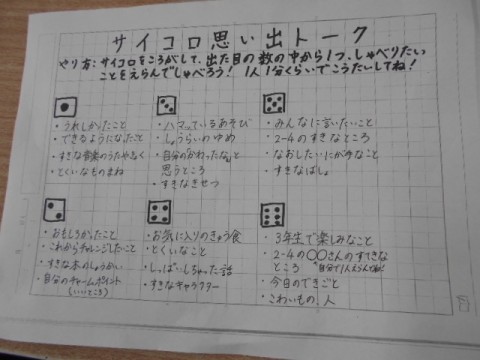 サイコロ思い出トーク
やり方:サイコロをころがして、出た目の数の中から1つ、しゃべりたい
ことをえらんでしゃべろう! 1人1分くらいでこうたいしてね!
・うれしかったこと
・できるようになったこと
・すきな音楽のうたやきょく
・とくいなものまね
・ハマッているあそび
・しょうらいのゆめ
・自分の「かわったな」と
思うところ
・すきなきせつ
・みんなに言いたいこと
・2-4のすきなところ
・なおしたいにがてなこと
・すきなばしょ
・おもしろかったこと
・これからチャレンジしたいこと
・すきな本のしょうかい
・自分のチャームポイント
(いいところ)
・お気に入りのきゅう食
・とくいなこと
・しっぱいしちゃった話
・すきなキャラクター
・3年生で楽しみなこと
・2-4の〇〇さんのすてきな
ところ *自分で1人えらんでね!
・今日のできごと
・こわいもの、人